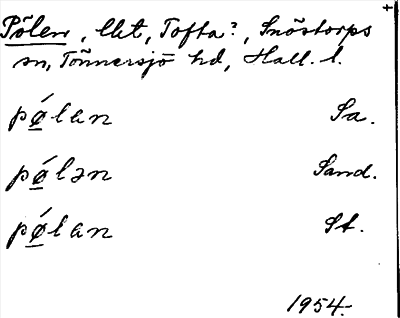 Pölen, lht, Tofta?, Snöstorps
sn, Tönnersjö hd, Hall. l.
pǿ̲lan Sa.
pǿ̲lən Sand.
pǿ̲lan St.
1954.